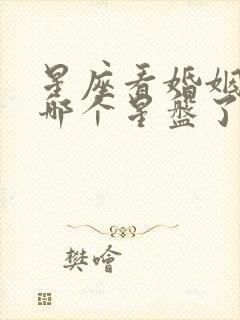 星座看婚姻
哪个星盘了
樊哙